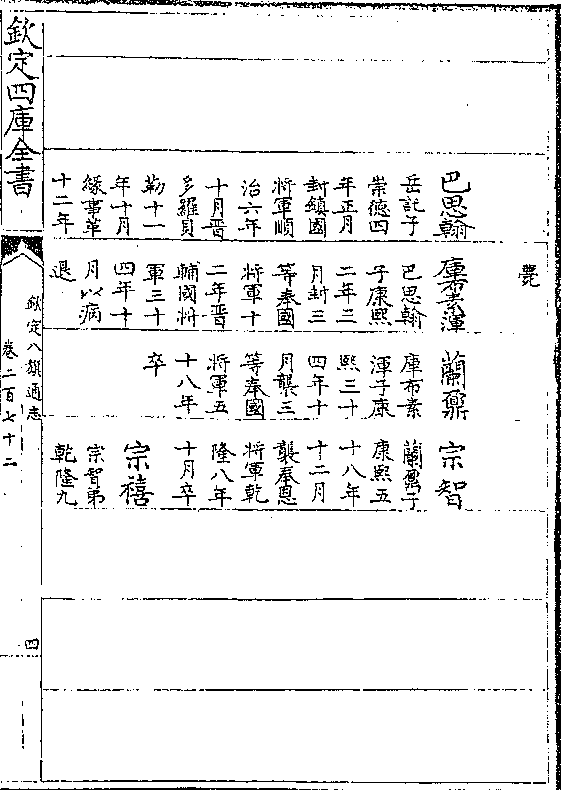 巴思翰
岳託子
崇德四
年正月
封鎮國
將軍順
治六年
十月晋
多羅貝
勒十一
年十月
緣事革
十二年
薨
庫布素渾
巴思翰
子康熙
二年二
月封三
等奉國
將軍十
二年晋
輔國將
軍三十
四年十
月以病
退
蘭鼐
庫布素
渾子康
熙三十
四年十
月襲三
等奉國
將軍五
十八年
卒
宗智
蘭鼐子
康熙五
十八年
十二月
襲奉恩
將軍乾
隆八年
十月卒
宗禧
宗智弟
乾隆九
欽定四庫全書
欽定八旗通志
卷二百七十二
四